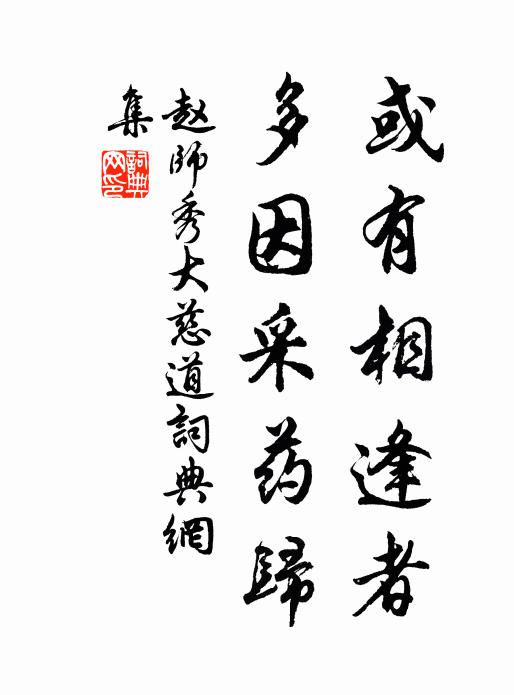 或有相逢者
多因采药歸
赵師秀大慈道詞典網
集
詞典
网印